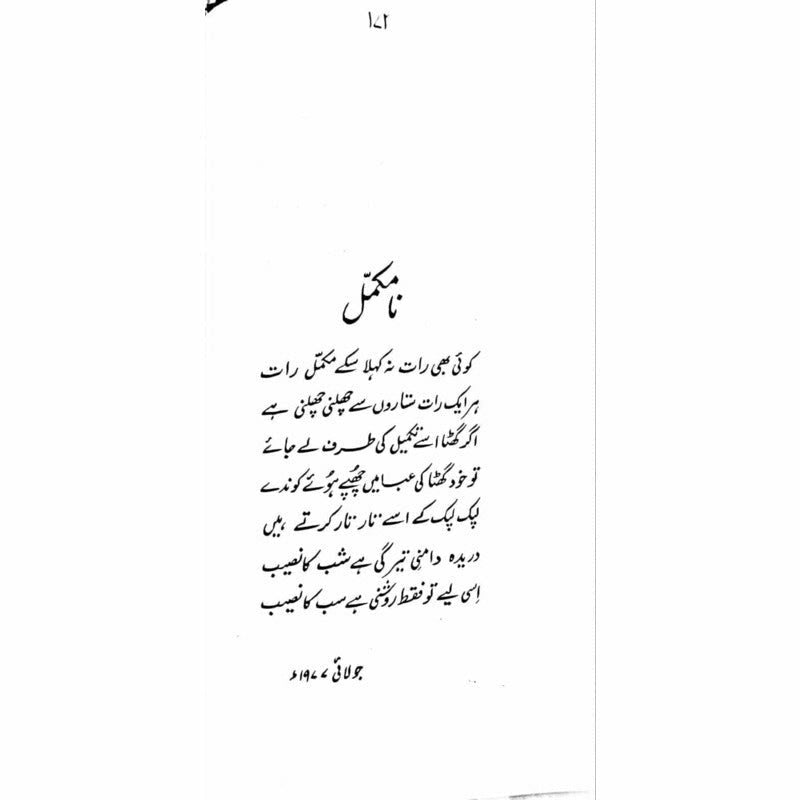 ۱۷۲
نامکمّل
کوئی بھی رات نہ کہلا سکے مکمّل رات
ہر ایک رات ستاروں سے چھلنی چھلنی ہے
اگر گھٹا اسے تکمیل کی طرف لے جائے
تو خود گھٹا کی عبا میں چھُپے ہُوئے کوندے
لپک لپک کے اسے تار تار کرتے ہیں
دریدہ دامنیِ تیرگی ہے شب کا نصیب
اِسی لیے تو فقط روشنی ہے سب کا نصیب
جولائی ۱۹۷۷ء